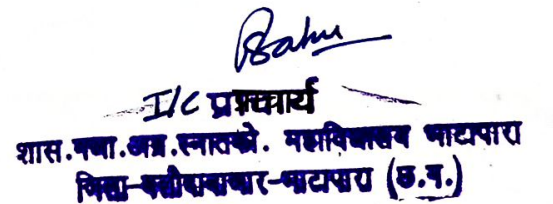 I/C प्राचार्य
शास.गजा.अग्र.स्नातको. महाविद्यालय भाटापारा
जिला-बलौदाबाजार-भाटापारा (छ.ग.)